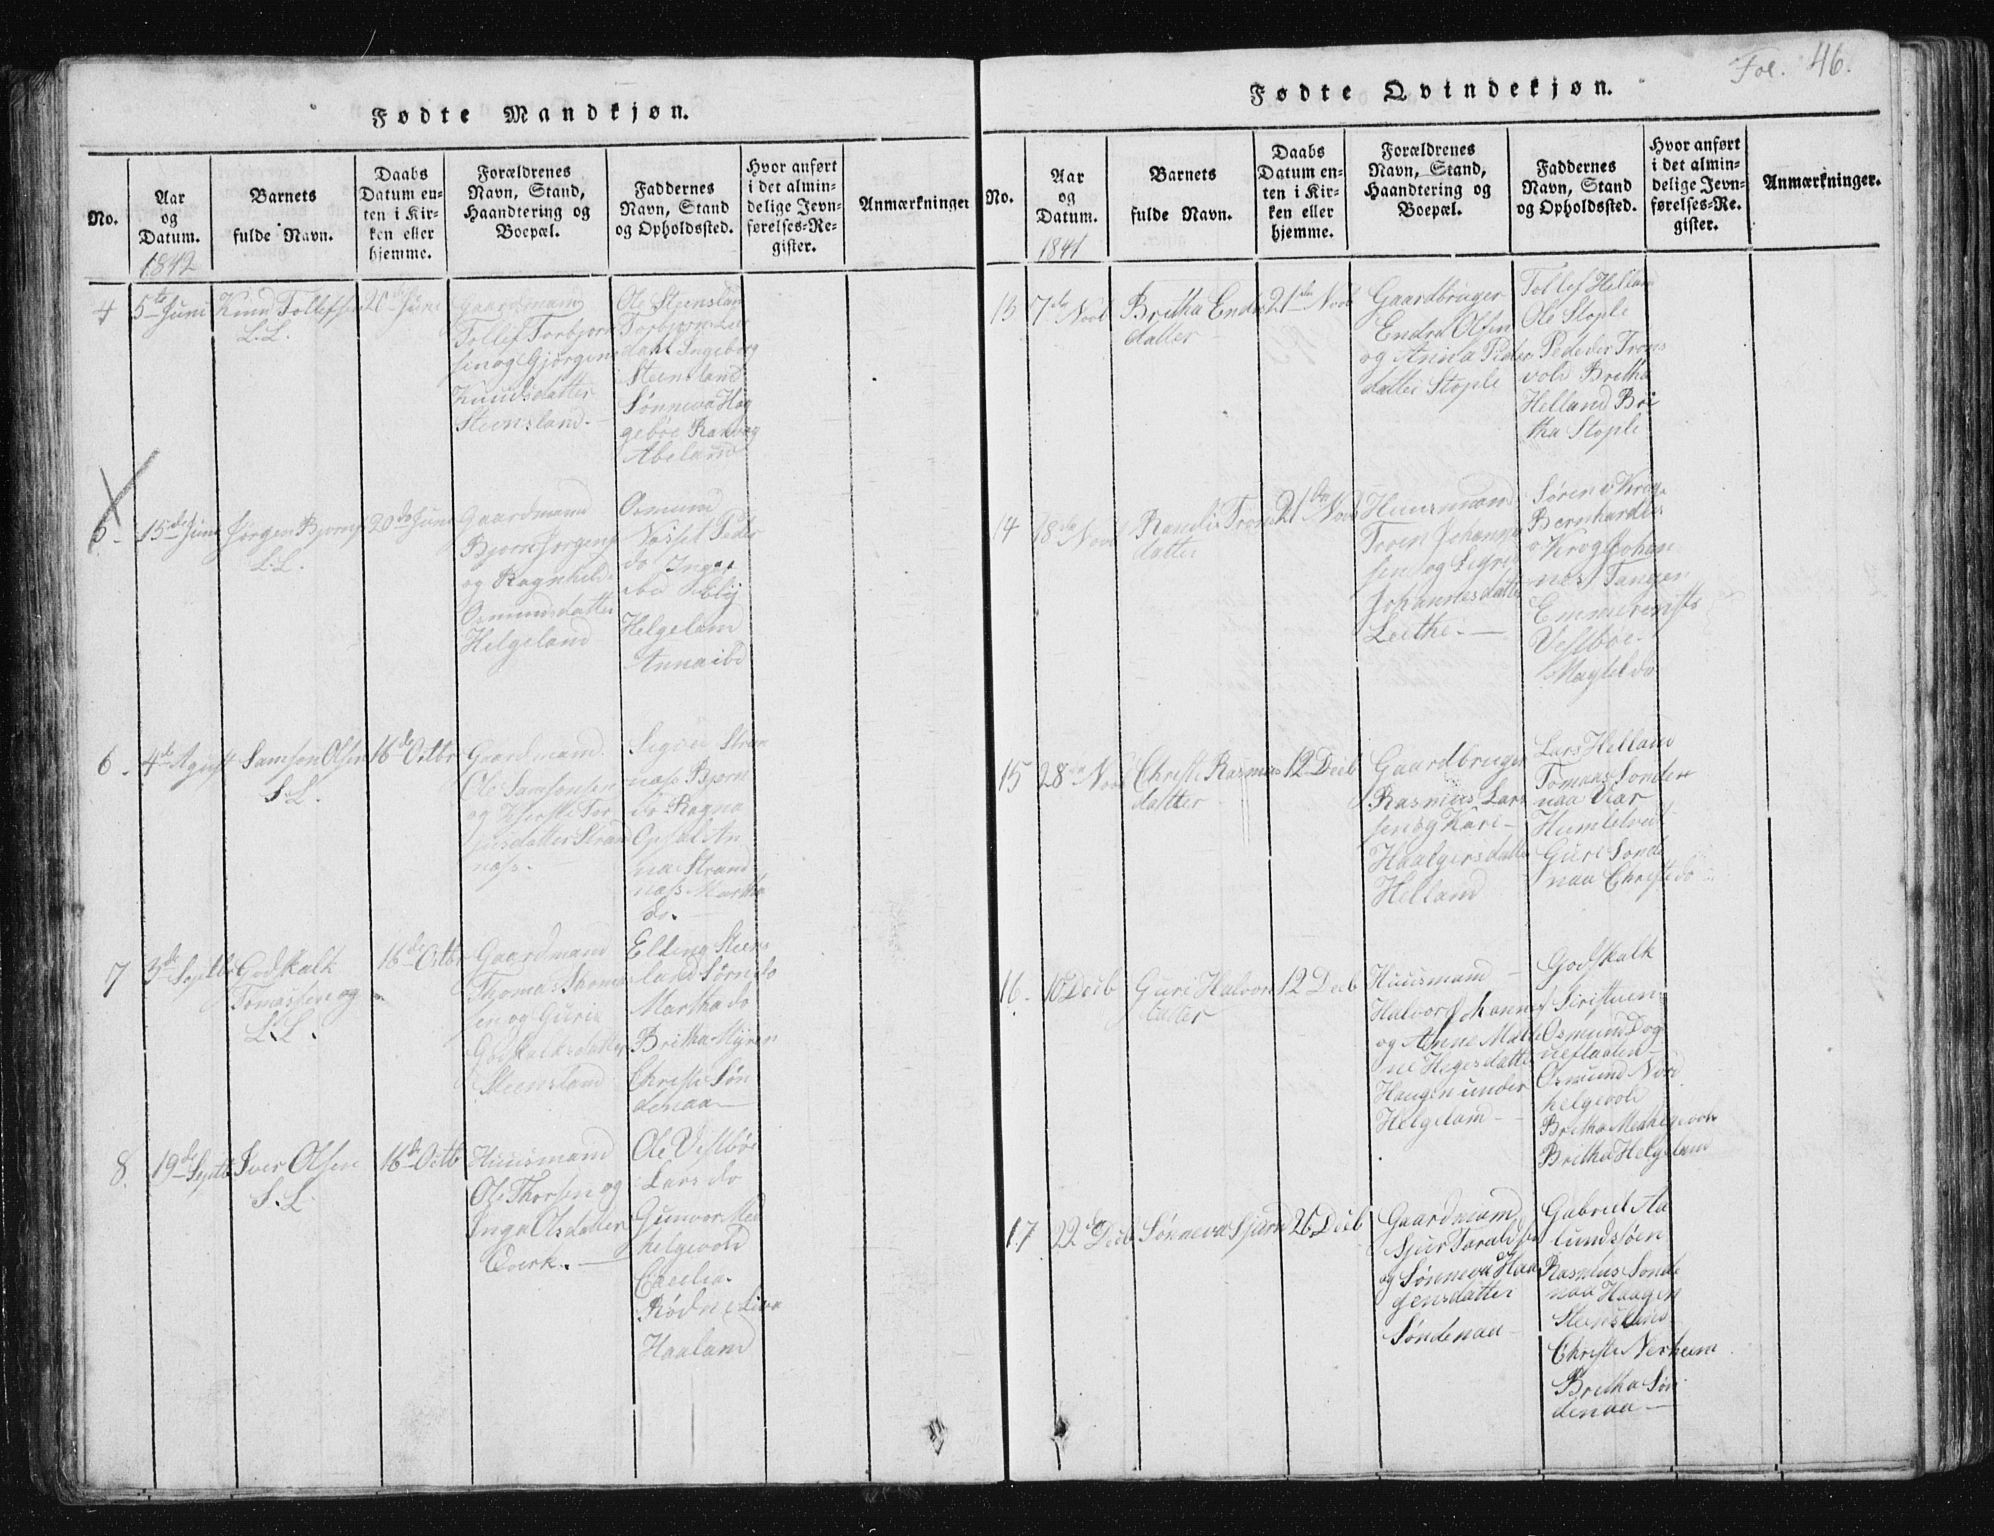 Fol. 46.
Fødte Mandkjøn.
No.
Aar
og
Datum.
1842
Barnets
fulde Navn.
Daabs
Datum en-
ten i Kir-
ken eller
hjemme.
Forældrenes
Navn, Stand,
Haandtering og
Boepæl.
Faddernes
Navn, Stand
og Opholdssted.
Hvor anført
i det almin-
delige Jevn-
førelses-Re-
gister.
Anmærkninger
4
5te Juni
Knud Tollefsen
L.L.
20de Juni
Gaardmand
Tollef Torbjørn
sen og Gjørgens
Knudsdatter
Steensland.
Ole Steensland
Torbjørn Lee
dahl Ingeborg
Steensland
Sønneva Hog
gebøe Ranveg
Abeland
5.
15de Juni
Jørgen Bjørns
L.L.
20de Juni
Gaardmand
Bjørn Jørgens
og Ragnhild
Osmundsdatter
Helgeland
Osmund
Næsset Peder
do Inge
ibd Elij
Helgeland
Anna ibd
6.
4de August
Samson Olsen
S.L.
16de Octbr
Gaardmand
Ole Samsonsen
og Kjerstie Tor
datter Stran
næss.
Siqvei Stran
næss Bjørn
do Ragna
Opsal An
na Strand
næss Martha
do.
7
3de Septbr
Godskalk
Tomassen
L.L.
16de Octbr
Gaardmand
Thomas Thomas
sen og Guria
Godskalksdatter
Steensland
Elling Steens
land Søren do
Martha do
Britha Myren
Christi Søn
denaa
8.
19de Septb
Iver Olsen
S.L.
16de Octb
Huusmand
Ole Thorsen og
Inga Olsdatter
Qverk.
Ole Vestbøe
Lars do
Gunvor Med
helgevold
Cecelia
Rødne Liva
Haaland
Fødte Qvindekjøn.
No.
Aar
og
Datum.
1841
Barnets
fulde Navn.
Daabs
Datum en-
ten i Kir-
ken eller
hjemme.
Forældrenes
Navn, Stand,
Haandtering og
Boepæl.
Faddernes
Navn, Stand
og Opholdssted.
Hvor anført
i det almin-
delige Jevn-
førelses-Re-
gister.
Anmærkninger.
13
7de Novb
Britha Endre
datter
21de Novb
Gaardbruger
Endre Olsen
og Anna Peders
datter Stople
Tollef Helland
Ole Stople
Peder Trons
vold Britha
Helland Bri
tha Stople
14
18de Novb
Randi Troens
datter
21de Novb
Huusmand
Troen Johannes
sen og Sigrie
Johannesdatter
Leethe.
Søren v Krog
Bernhardus
v Krogh Johan
nes Tangen
Emmerentse
Vestbøe
Magtel do
15
28de Novb
Christi Rasmus
datter
12 Decb
Gaardbruger
Rasmus Lars
sen og Kari
Haagensdatter
Helland
Lars Helland
Tomas Sonde
naa Viar
Humletved
Guri Sonde
naa Christi do
16.
10 Decb
Guri Halvors
datter
12 Decb
Huusmand
Halvor Johannes
og Anne Malle
ne Hegesdatter
Haugen under
Helgeland
Godskalk
Siristuen
Osmund Dog
neflaaten
Osmund Nord
helgevold
Britha Medhelgevold
Britha Helgeland
17
22de Decb
Sønneva Sjurs
26 Decb
Gaardmand
Sjur Taraldsen
og Sønneva Haa
gensdatter
Søndenaa
Gabriel Aa
lundsøen
Rasmus Sonde
naa Haagen
Steensland
Christi Nerheim
Britha Søn
denaa